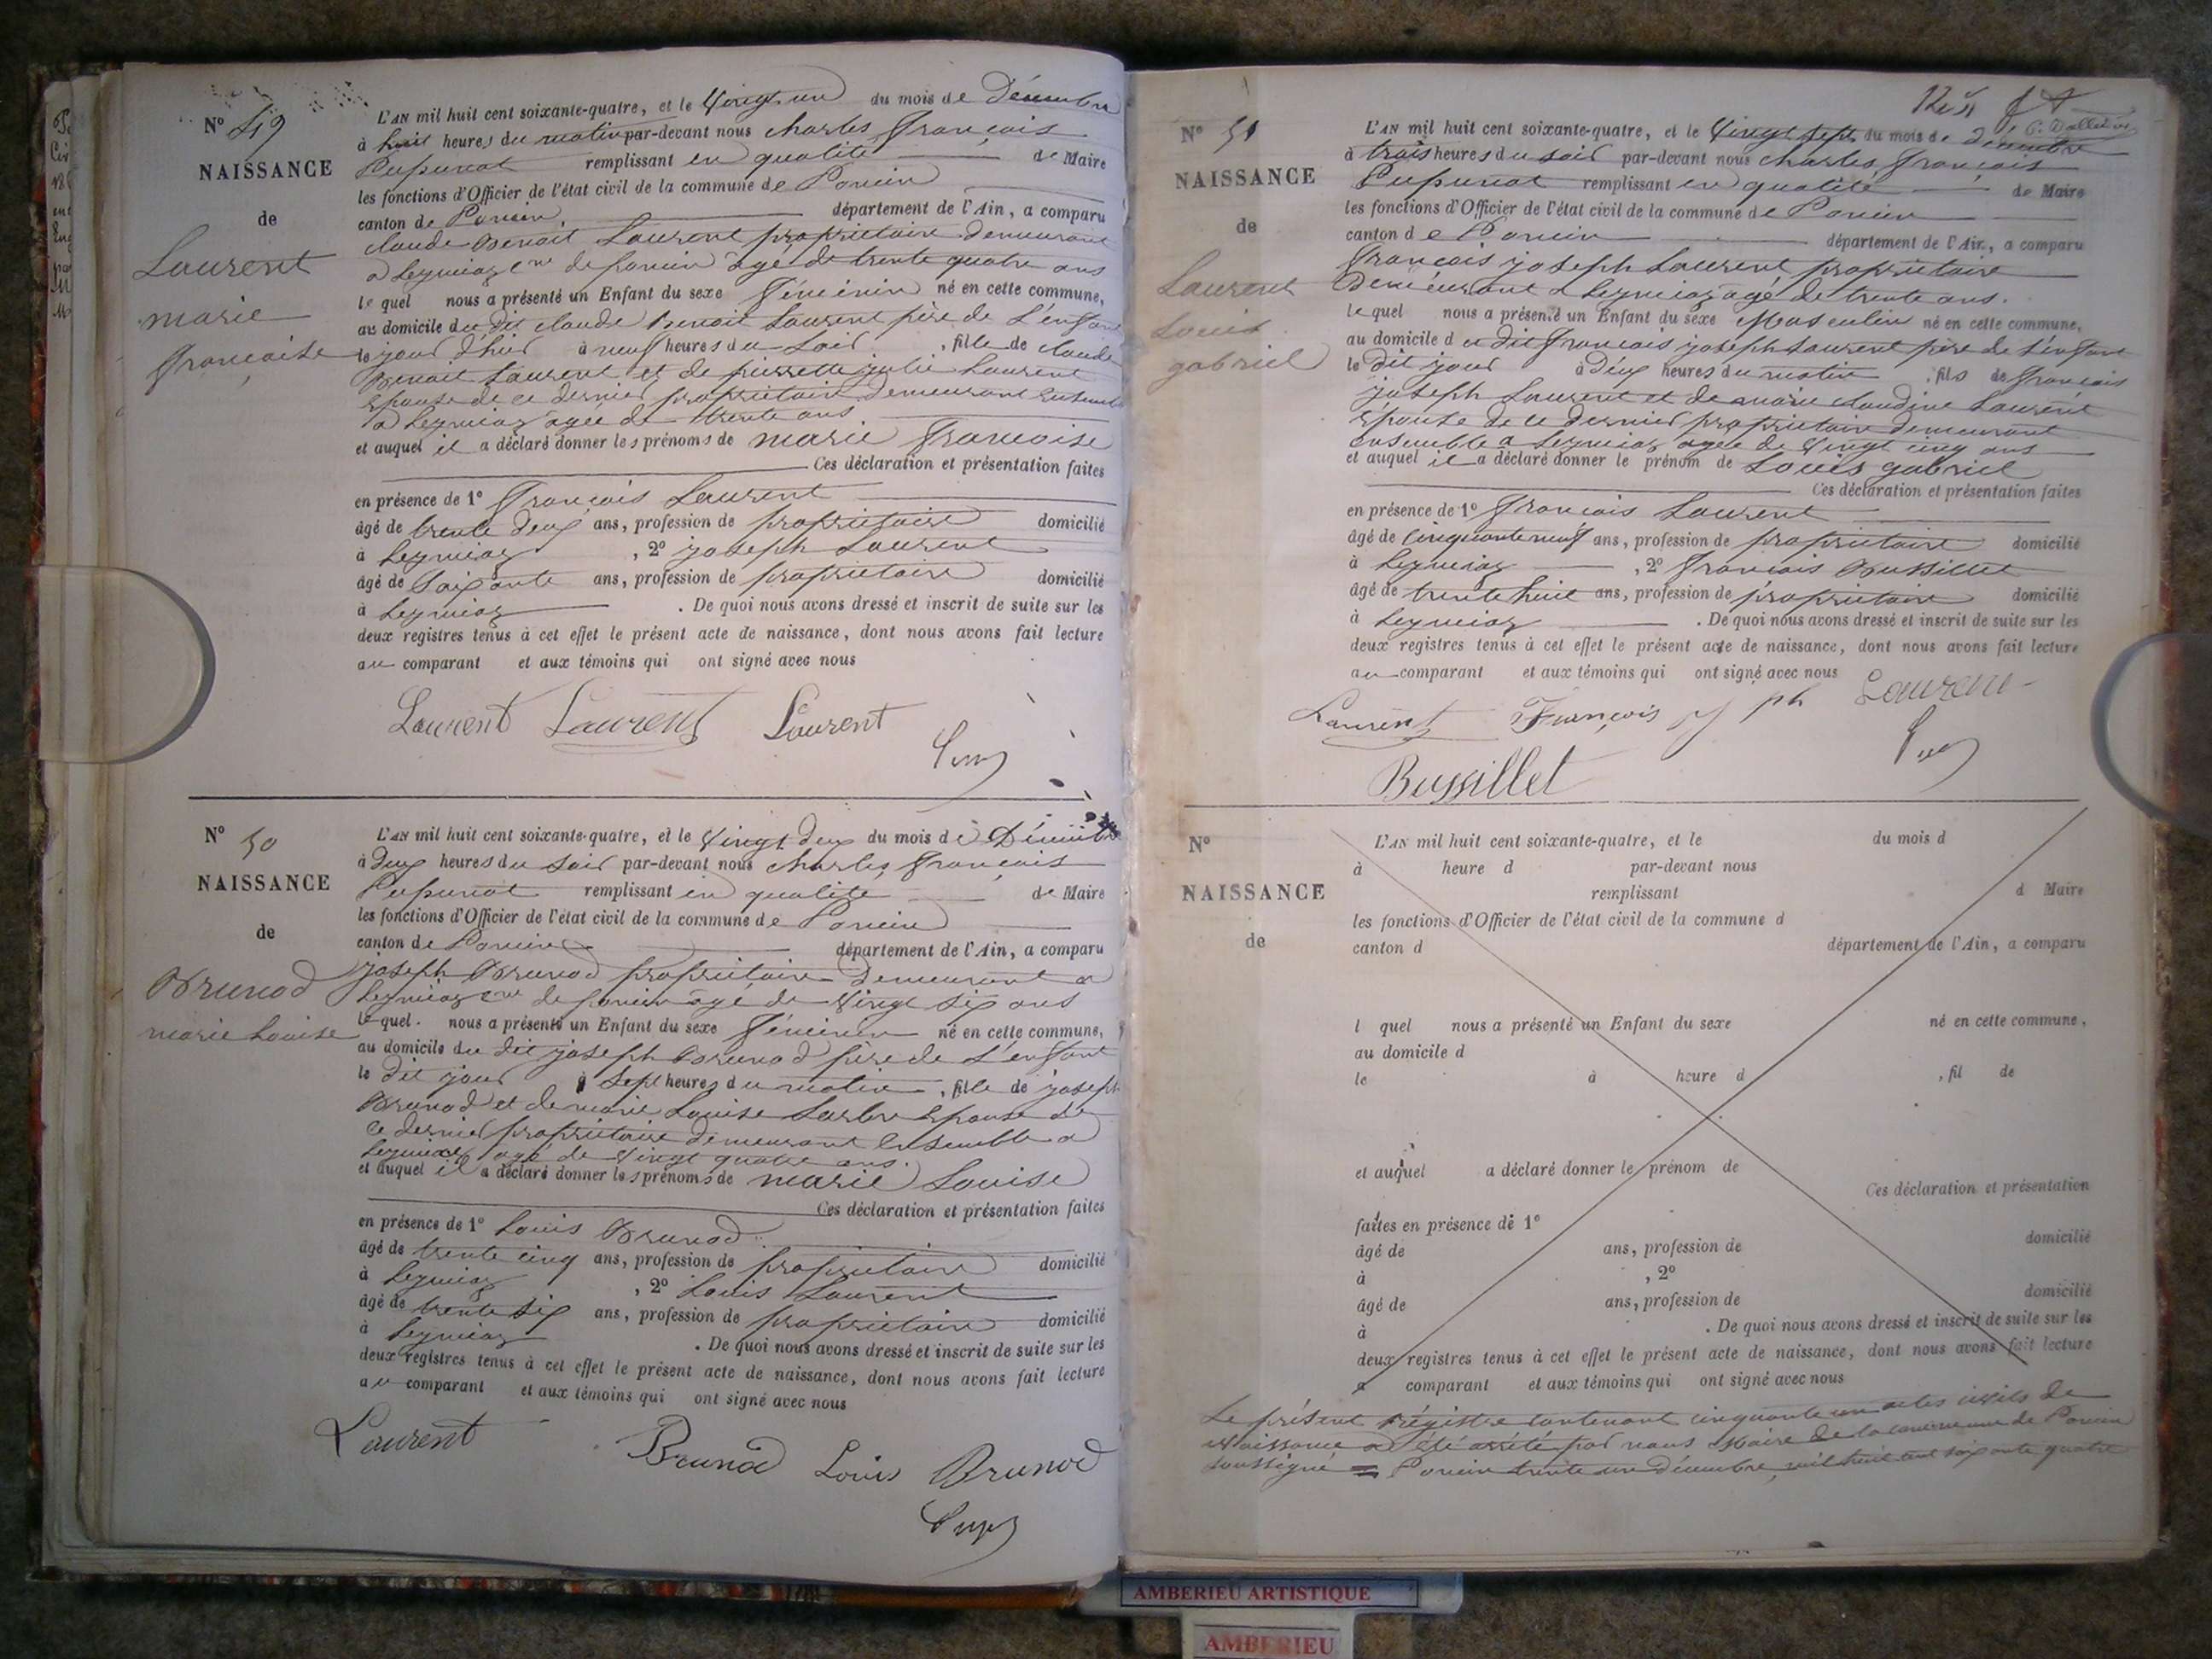 N° 49
NAISSANCE
de
Laurent
marie
françoise
L'AN mil huit cent soixante-quatre, et le Vingt un du mois de Décembre
à huit heures du matin par-devant nous charles françois
Pupunat remplissant en qualité de Maire
les fonctions d'Officier de l'état civil de la commune de Poncin
canton de Poncin, département de l'Ain, a comparu
claude Benoit Laurent propriétaire demeurant
a Leymiaz cne de poncin âgé de trente quatre ans
lequel nous a présenté un Enfant du sexe féminin né en cette commune,
au domicile du dit claude Benoit Laurent père de l'enfant
le jour d'hier à neuf heures du soir, fille de claude
Benoit Laurent et de pierrette julie Laurent
Epouse de ce dernier propriétaire demeurant ensemble
a Leymiaz agée de trente ans
et auquel il a déclaré donner les prénoms de marie françoise
Ces déclaration et présentation faites
en présence de 1° françois Laurent
âgé de trente deux ans, profession de propriétaire domicilié
à Leymiaz, 2° joseph Laurent
âgé de soixante ans, profession de propriétaire domicilié
à Leymiaz. De quoi nous avons dressé et inscrit de suite sur les
deux registres tenus à cet effet le présent acte de naissance, dont nous avons fait lecture
au comparant et aux témoins qui ont signé avec nous
Laurent Laurent Laurent
N° 50
NAISSANCE
de
Brunod
marie Louise
L'AN mil huit cent soixante-quatre, et le Vingt deux du mois de Décembre
à deux heures du soir par-devant nous charles françois
Pupunat remplissant en qualité de Maire
les fonctions d'Officier de l'état civil de la commune de Poncin
canton de Poncin département de l'Ain, a comparu
joseph Brunod propriétaire demeurant a
Leymiaz cne de poncin âgé de Vingt six ans
lequel. nous a présenté un Enfant du sexe féminin né en cette commune,
au domicile du dit joseph Brunod père de l'enfant
le dit jour à sept heures du matin, fille de joseph
Brunod et de marie Louise Epouse de
ce dernier propriétaire demeurant ensemble a
Leymiaz agé de Vingt quatre ans.
et auquel il a déclaré donner les prénoms de marie Louise
Ces déclaration et présentation faites
en présence de 1° Louis Brunod
âgé de trente cinq ans, profession de propriétaire domicilié
à Leymiaz, 2° Louis Laurent
âgé de trente six ans, profession de propriétaire domicilié
à Leymiaz. De quoi nous avons dressé et inscrit de suite sur les
deux registres tenus à cet effet le présent acte de naissance, dont nous avons fait lecture
au comparant et aux témoins qui ont signé avec nous
Laurent Brunod Louis Brunod
N° 51
NAISSANCE
de
Laurent
Louis
gabriel
L'AN mil huit cent soixante-quatre, et le Vingt sept du mois de Décembre
à trois heures du soir par-devant nous charles, françois
Pupunat remplissant en qualité de Maire
les fonctions d'Officier de l'état civil de la commune de Poncin
canton de Poncin département de l'Ain, a comparu
françois joseph Laurent propriétaire
Demeurant a Leymiaz agé de trente ans.
lequel nous a présenté un Enfant du sexe Masculin né en cette commune,
au domicile du dit françois joseph Laurent père de l'enfant
le dit jour à deux heures du matin, fils de françois
joseph Laurent et de marie claudine Laurent
Epouse de ce dernier propriétaire demeurant
ensemble a Leymiaz agée de Vingt cinq ans
et auquel il a déclaré donner le prénom de Louis gabriel
Ces déclaration et présentation faites
en présence de 1° françois Laurent
âgé de cinquante neuf ans, profession de propriétaire domicilié
à Leymiaz, 2° françois Bussillet
âgé de trente huit ans, profession de propriétaire domicilié
à Leymiaz. De quoi nous avons dressé et inscrit de suite sur les
deux registres tenus à cet effet le présent acte de naissance, dont nous avons fait lecture
au comparant et aux témoins qui ont signé avec nous
Laurent François j ph Laurent
Bussillet
N°
NAISSANCE
de
L'AN mil huit cent soixante-quatre, et le du mois d
à heure d par-devant nous
remplissant d Maire
les fonctions d'Officier de l'état civil de la commune d
canton d département de l'Ain, a comparu
l quel nous a présenté un Enfant du sexe né en cette commune,
au domicile d
le à heure d, fil de
et auquel a déclaré donner le prénom de
Ces déclaration et présentation
faites en présence de 1°
âgé de ans, profession de domicilié
à, 2°
âgé de ans, profession de domicilié
à. De quoi nous avons dressé et inscrit de suite sur les
deux registres tenus à cet effet le présent acte de naissance, dont nous avons fait lecture
a comparant et aux témoins qui ont signé avec nous
Le présent régistre contenant cinquante un actes civils de
Naissance a été arrêté par nous Maire de la commune de Poncin
soussigné = Poncin trente un Décembre, mil huit cent soixante quatre
AMBERIEU ARTISTIQUE
AMBERIEU